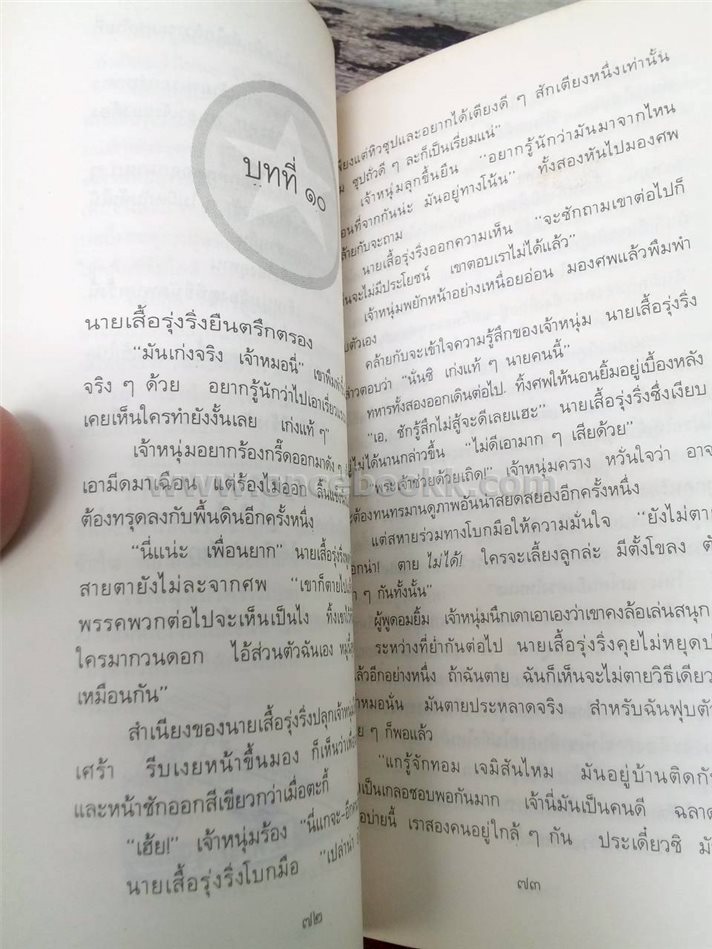 บทที่ ๑๐
นายเสื้อรุ่งริ่งยืนตรึกตรอง
“มันเก่งจริง เจ้าหมอนี่” เขาพึมพำ
จริง ๆ ด้วย อยากรู้นักว่าไปเอาเรี่ยวแรง
เคยเห็นใครทำยังงั้นเลย เก่งแท้ ๆ”
เจ้าหนุ่มอยากร้องกรี๊ดออกมาดัง ๆ
เอามีดมาเฉือน แต่ร้องไม่ออก ลิ้น
ต้องทรุดลงกับพื้นดินอีกครั้งหนึ่ง
“นี่แน่ะ เพื่อนยาก” นายเสื้อรุ่งริ่ง
สายตายังไม่ละจากศพ “เขาก็ตายไป
พรรคพวกต่อไปจะเห็นเป็นไง ทิ้งเขาไว้
ใครมากวนดอก ไอ้ส่วนตัวฉันเอง หมู่นี้
เหมือนกัน”
สำเนียงของนายเสื้อรุ่งริ่งปลุกเจ้า
เศร้า รีบเงยหน้าขึ้นมอง ก็เห็นว่า
และหน้าซักออกสีเขียวกว่าเมื่อตะกี้
“เฮ้ย!” เจ้าหนุ่มร้อง “นี่แกจะ-อีก
นายเสื้อรุ่งริ่งโบกมือ “เปล่าน่า
๗๒
เพียงแต่หิวซุปและอยากได้เตียงดี ๆ สักเตียงหนึ่งเท่านั้น
ซุปถั่วดี ๆ ละก็เป็นเรี่ยมแน่”
เจ้าหนุ่มลุกขึ้นยืน “อยากรู้นักว่ามันมาจากไหน
ตอนที่จากกันน่ะ มันอยู่ทางโน้น” ทั้งสองหันไปมองศพ
คล้ายกับจะถาม
นายเสื้อรุ่งริ่งออกความเห็น “จะซักถามเขาต่อไปก็
เห็นจะไม่มีประโยชน์ เขาตอบเราไม่ได้แล้ว”
เจ้าหนุ่มพยักหน้าอย่างเหนื่อยอ่อน มองศพแล้วพึมพำ
กับตัวเอง
คล้ายกับจะเข้าใจความรู้สึกของเจ้าหนุ่ม นายเสื้อรุ่งริ่ง
กล่าวตอบว่า “นั่นซิ เก่งแท้ ๆ นายคนนี้”
ทหารทั้งสองออกเดินต่อไป. ทิ้งศพให้นอนยิ้มอยู่เบื้องหลัง
“เอ, ชักรู้สึกไม่สู้จะดีเลยแฮะ” นายเสื้อรุ่งริ่งซึ่งเงียบ
อยู่ไม่ได้นานกล่าวขึ้น “ไม่ดีเอามาก ๆ เสียด้วย”
พระเจ้าช่วยด้วยเถิด!” เจ้าหนุ่มคราง หวั่นใจว่า อาจ
ต้องทนทรมานดูภาพอันน่าสยดสยองอีกครั้งหนึ่ง
แต่สหายร่วมทางโบกมือให้ความมั่นใจ “ยังไม่ตาย
ดอกน่า! ตาย ไม่ได้! ใครจะเลี้ยงลูกล่ะ มีตั้งโขลง
ๆ กันทั้งนั้น”
ผู้พูดอมยิ้ม เจ้าหนุ่มนึกเดาเอาเองว่าเขาคงล้อเล่นสนุก
ระหว่างที่ย่ำกันต่อไป นายเสื้อรุ่งริ่งคุยไม่หยุด
แล้วอีกอย่างหนึ่ง ถ้าฉันตาย ฉันก็เห็นจะไม่ตายวิธีเดียว
เจ้าหมอนั่น มันตายประหลาดจริง สำหรับฉันฟุบตัว
ๆ ก็พอแล้ว
“แกรู้จักทอม เจมิสันไหม มันอยู่บ้านติดกัน
เป็นเกลอชอบพอกันมาก เจ้านี่มันเป็นคนดี ฉลาด
เมื่อบ่ายนี้ เราสองคนอยู่ใกล้ ๆ กัน ประเดี๋ยวซิ
๗๓